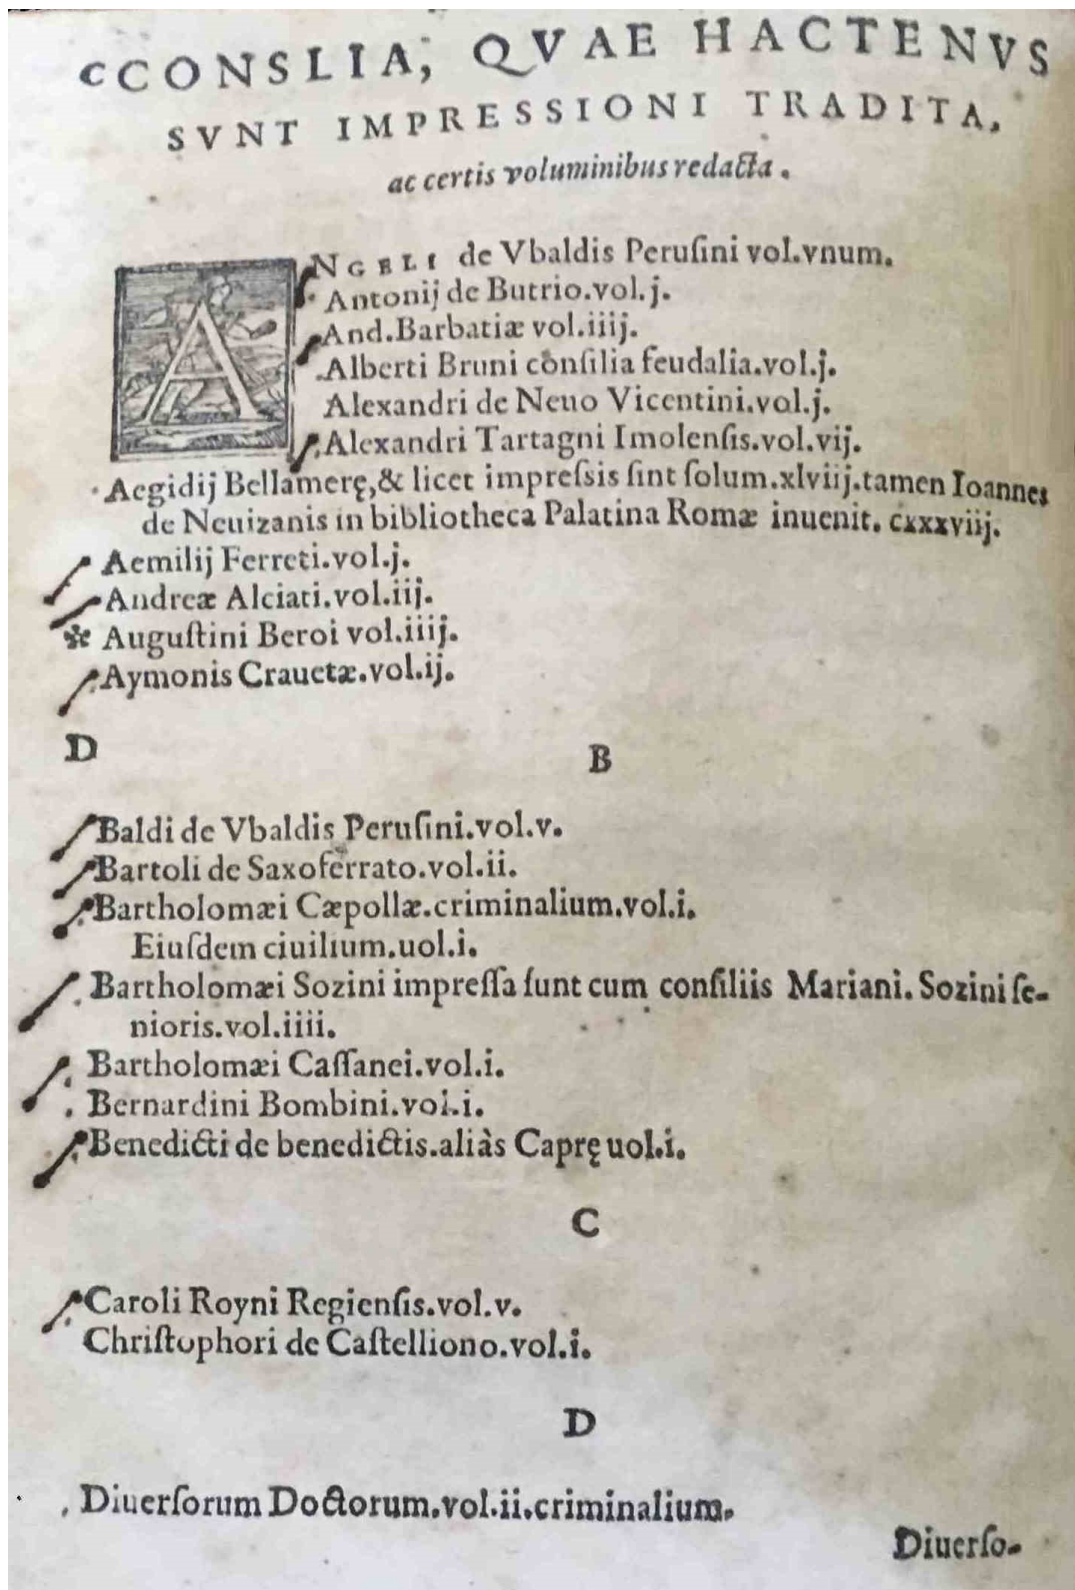 CCONSLIA, QVAE HACTENVS
SVNT IMPRESSIONI TRADITA,
ac certis voluminibus redacta.
ANGELI de Vbaldis Peruſini vol.vnum.
Antonij de Butrio.vol.j.
And.Barbatiæ vol.iiij.
Alberti Bruni conſilia feudalia.vol.j.
Alexandri de Neuo Vicentini.vol.j.
Alexandri Tartagni Imolenſis.vol.vij.
Aegidij Bellamerę,& licet impreſsis ſint ſolum.xlviij.tamen Ioannes
de Neuizanis in bibliotheca Palatina Romæ inuenit. cxxxviij.
Aemilij Ferreti.vol.j.
Andreæ Alciati.vol.iij.
* Auguſtini Beroi vol.iiij.
Aymonis Crauetæ.vol.ij.
D
B
Baldi de Vbaldis Peruſini.vol.v.
Bartoli de Saxoferrato.vol.ii.
Bartholomæi Cæpollæ.criminalium.vol.i.
Eiuſdem ciuilium.uol.i.
Bartholomæi Sozini impreſſa ſunt cum conſiliis Mariani. Sozini ſe-
nioris.vol.iiii.
Bartholomæi Caſſanei.vol.i.
Bernardini Bombini.vol.i.
Benedicti de benedictis.aliàs Caprę uol.i.
C
Caroli Royni Regienſis.vol.v.
Chriſtophori de Caſtelliono.vol.i.
D
Diuerſorum Doctorum.vol.ii.criminalium.
Diuerſo-